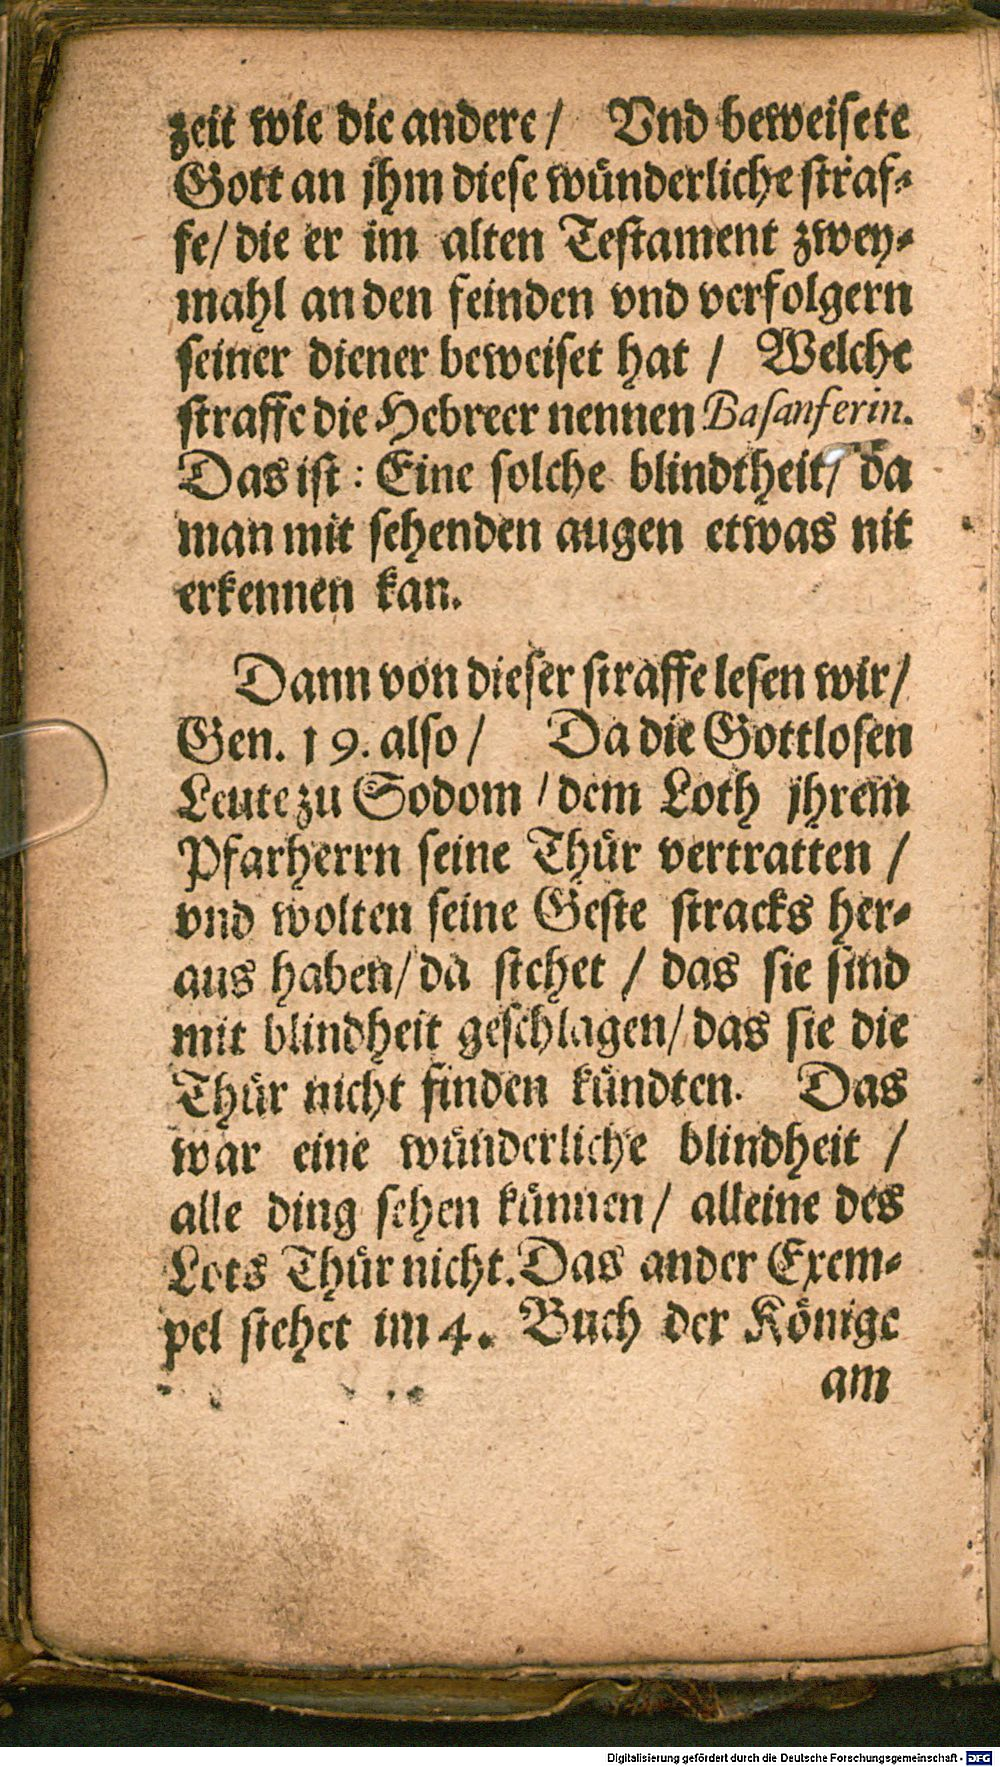 zeit wie die andere / Vnd beweisete
Gott an jhm diese wünderliche straf⸗
fe / die er im alten Testament zwey⸗
mahl an den feinden vnd verfolgern
seiner diener beweiset hat / Welche
straffe die Hebreer nennen Basanferin.
Das ist : Eine solche blindtheit / da
man mit sehenden augen etwas nit
erkennen kan.
Dann von dieser straffe lesen wir /
Gen. 19. also / Da die Gottlosen
Leute zu Sodom / dem Loth jhrem
Pfarherrn seine Thür vertratten /
vnd wolten seine Geste stracks her⸗
aus haben / da stehet / das sie sind
mit blindheit geschlagen / das sie die
Thür nicht finden kündten. Das
war eine wünderliche blindheit /
alle ding sehen künnen / alleine des
Lots Thür nicht. Das ander Exem⸗
pel stehet im 4. Buch der Könige
am
Digitalisierung gefördert durch die Deutsche Forschungsgemeinschaft - DFG